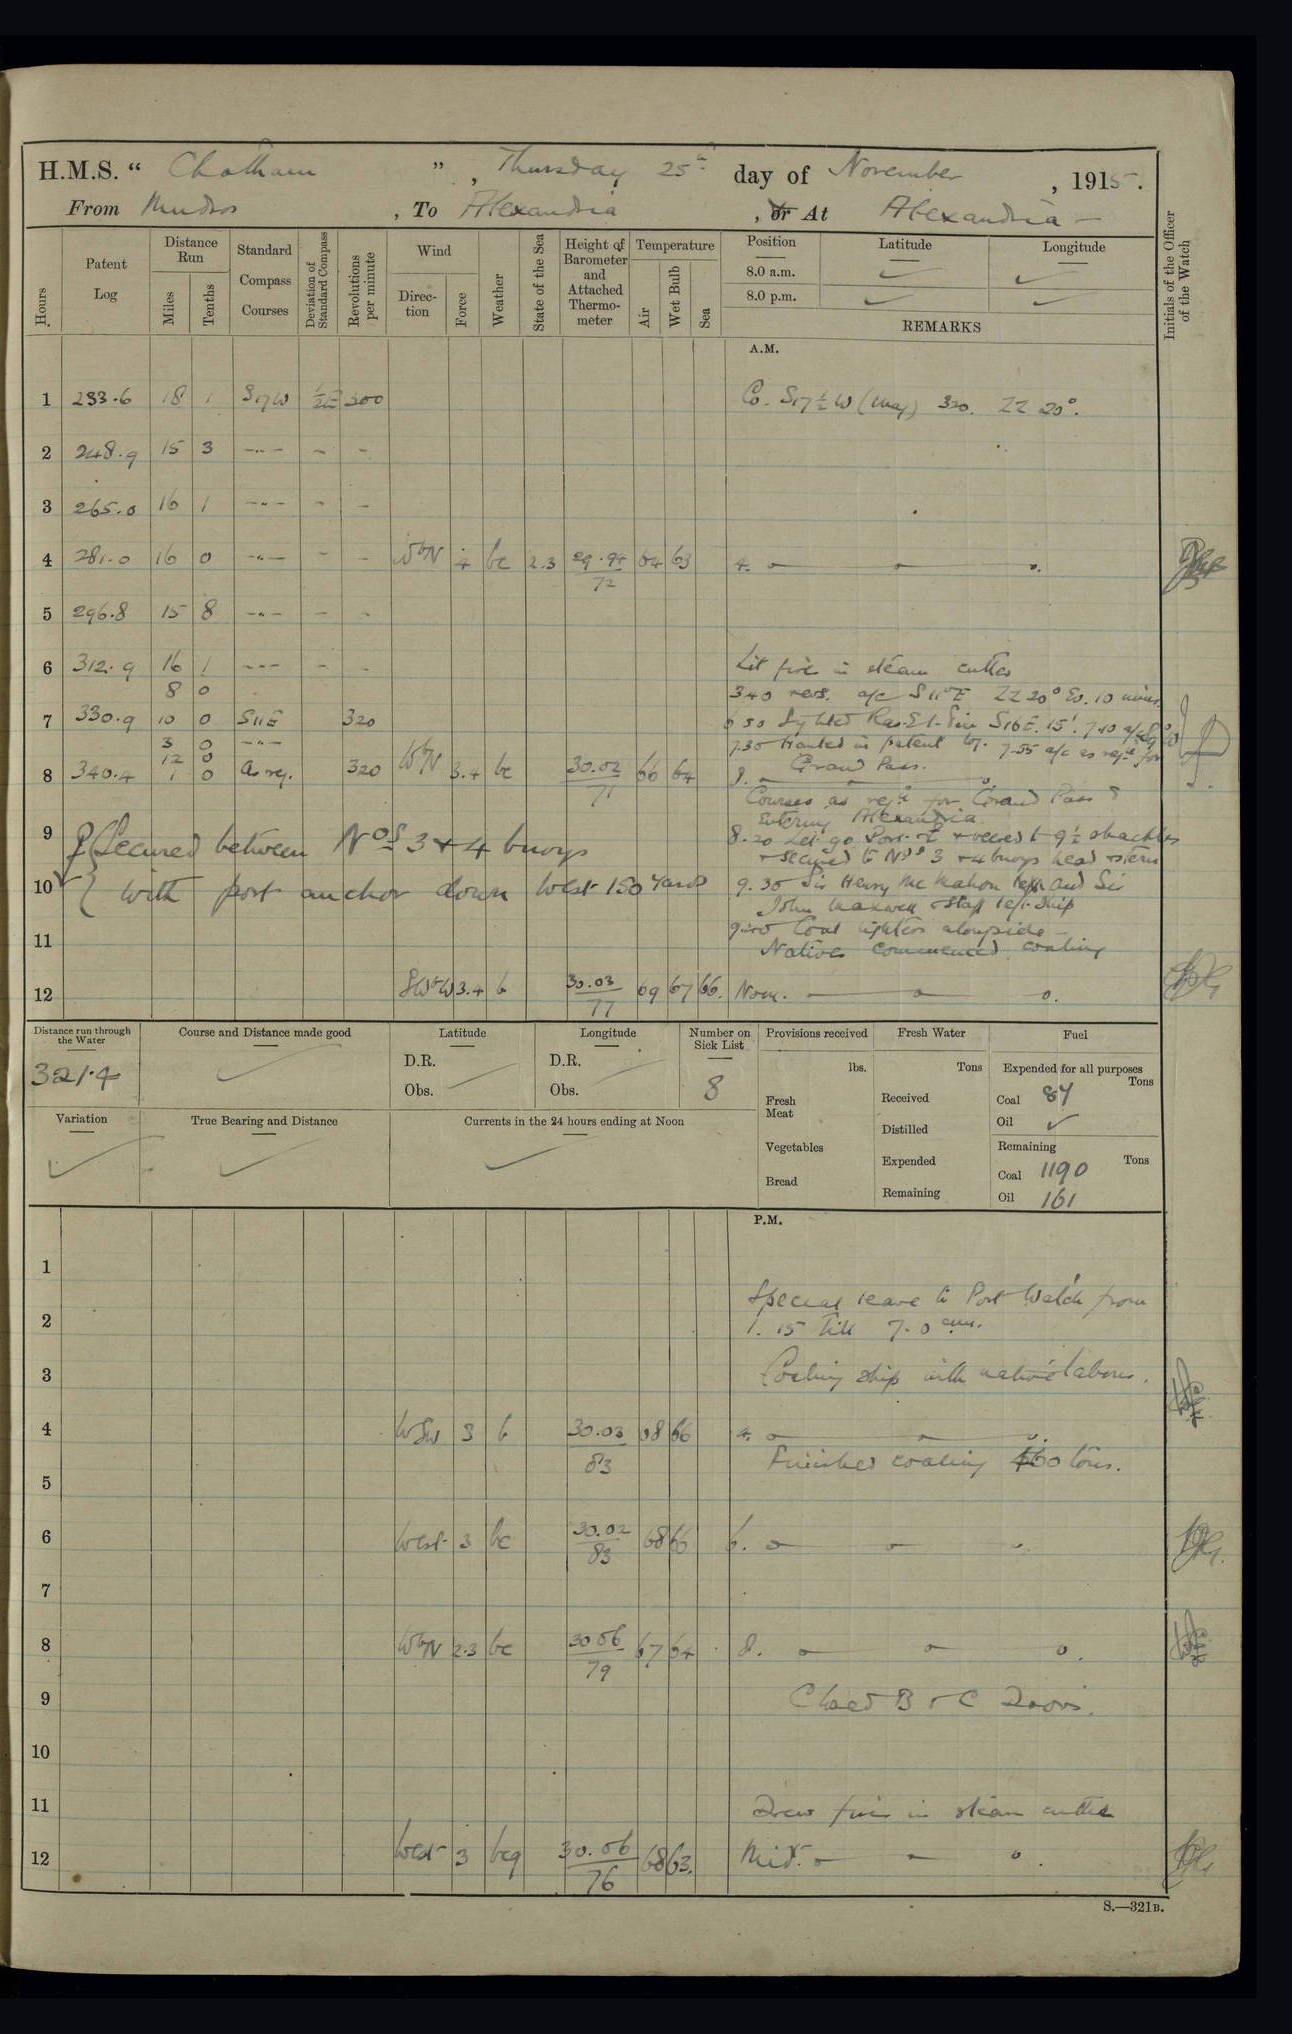 H.M.S. “ Chatham ” , Thursday 25th day of November , 1915.
From Mudros , To Alexandria , or At Alexandria —
Hours
Patent Log
Distance Run
Miles
Tenths
Standard Compass Courses
Deviation of Standard Compass
Revolutions per minute
Wind
Direction
Force
Weather
State of the Sea
Height of Barometer and Attached Thermometer
Temperature
Air
Wet Bulb
Sea
Position
Latitude
Longitude
8.0 a.m.
8.0 p.m.
REMARKS
Initials of the Officer of the Watch
A.M.
1 233.6 18 1 S17W ½E 300 Co. S17½W (Mag) 320. ZZ 20°.
2 248.9 15 3 -"- - -
3 265.0 16 1 -"- - -
4 281.0 16 0 -"- - - WbN 4 bc 2.3 29.94 64 63 4.
72
5 296.8 15 8 -"- - -
6 312.9 16 1 -"- - - Lit fire in steam cutter
8 0 340 revs. a/c S11°E ZZ 20° Ev. 10 mins.
7 330.9 10 0 S11E 320 6.50 Sighted Ras-El-Tin S16E. 15'. 7.10 a/c
3 0 -"- 7.30 Hauled in patent log. 7.55 a/c as reqd for
12 0 Grand Pass.
8 340.4 1 0 As req. 320 WbN 3.4 bc 30.02 66 64 8.
71
Courses as reqd for Grand Pass &
Entering Alexandria
9 8.20 Let go Port & veered to 9½ shackles
Secured between Nos 3 & 4 buoys & secured to Nos 3 & 4 buoys head & stern
10 with port anchor down West 150 yards 9.30 Sir Henry McMahon left and Sir
John Maxwell & Staff left ship
11 Coal lighters alongside —
Natives commenced coaling
12 SWbW 3.4 b 30.03 69 67 66. Noon.
77
Distance run through the Water
321.4
Course and Distance made good
Latitude
D.R.
Obs.
Longitude
D.R.
Obs.
Number on Sick List
8
Provisions received
lbs.
Fresh Meat
Vegetables
Bread
Fresh Water
Tons
Received
Distilled
Expended
Remaining
Fuel
Expended for all purposes
Tons
Coal 87
Oil
Remaining
Tons
Coal 1190
Oil 161
Variation
True Bearing and Distance
Currents in the 24 hours ending at Noon
P.M.
1
Special leave to Port Watch from
2 1.15 till 7.0 a.m.
3 Coaling ship with native labour.
4 WSW 3 b 30.03 68 66 4.
83 Finished coaling 460 tons.
5
6 West 3 bc 30.02 68 66 6.
83
7
8 WbN 2.3 bc 30.06 67 64 8.
79
9 Closed B & C Doors.
10
11 Drew fires in steam cutter
12 West 3 bcq 30.06 68 63. Midt.
76
S.—321B.